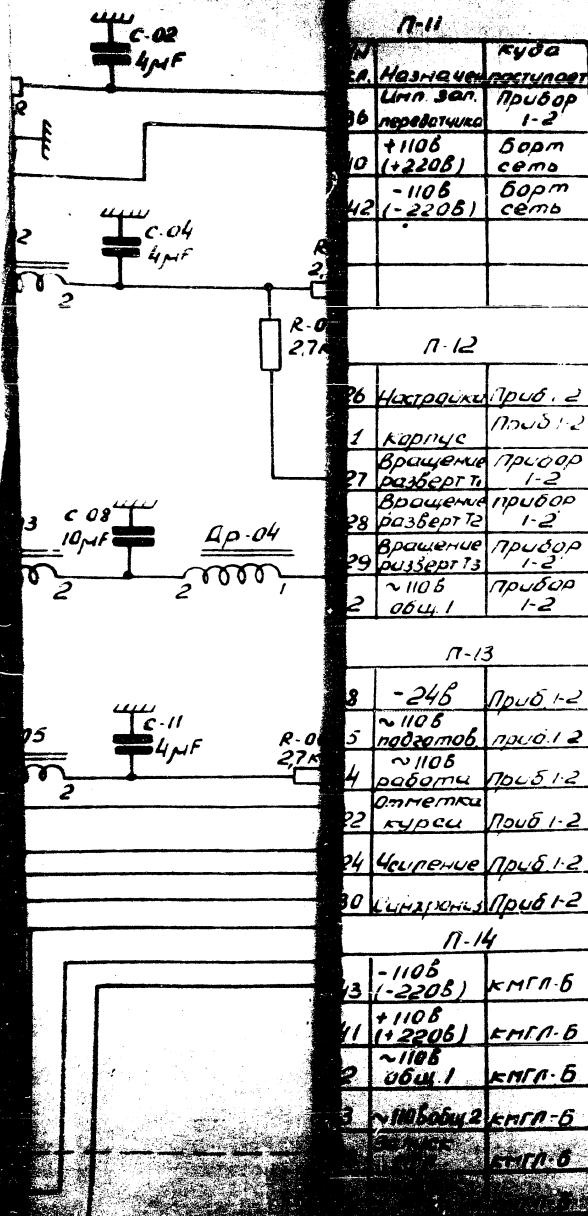 С-02
4μF
R
2
С-04
4μF
2
R-0
2,7к
03
С 08
10μF
Др-04
2
2
1
05
С-11
4μF
2
R-0
2,7к
П-11
куда
Назначен поступает
36 Имп. зап. передатчика Прибор 1-2
10 +110в (+220в) Борт сеть
42 -110в (-220в) Борт сеть
П-12
26 Настройки Приб. 1-2
1 Корпус Приб 1-2
27 Вращение разверт Т1 Прибор 1-2
28 Вращение разверт Т2 прибор 1-2
29 Вращение разверт Т3 Прибор 1-2
2 ~110в общ. 1 Прибор 1-2
П-13
8 -24в Приб 1-2
5 ~110в подготов. приб. 1 2
4 ~110в работа Приб 1-2
22 Отметка курса Приб 1-2
24 Усиление Приб 1-2
30 Синхрониз Приб 1-2
П-14
43 -110в (-220в) кмгл-Б
41 +110в (+220в) кмгл-Б
2 ~110в общ. 1 кмгл-Б
3 ~110в общ 2 кмгл-Б
кмгл-Б